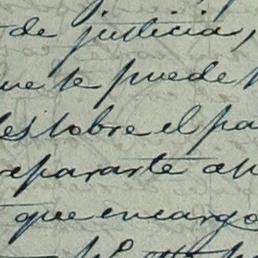 de justicia,
ue se puede
es sobre el pa
repararte a
que encargo